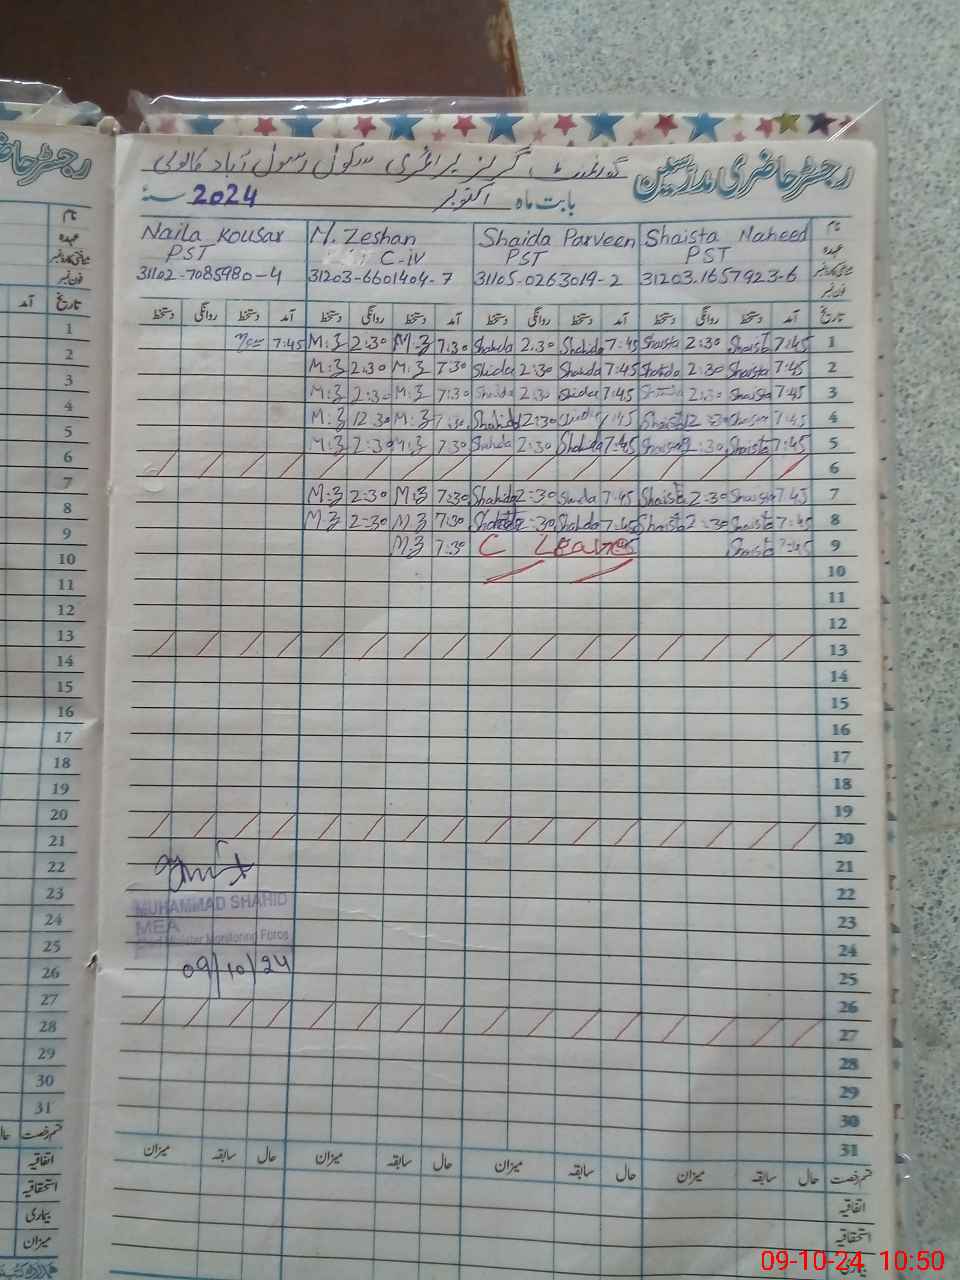 رجسٹر حاضری مدرسین گورنمنٹ گرلز پرائمری سکول رسول آباد کالونی
بابت ماہ اکتوبر سنہ 2024
نام Shaista Naheed Shaida Parveen M. Zeshan Naila Kousar
عہدہ PST PST C-iv PST
شناختی کارڈ نمبر 31203-1657923-6 31105-0263019-2 31203-6601404-7 31102-7085980-4
فون نمبر
تاریخ آمد دستخط روانگی دستخط آمد دستخط روانگی دستخط آمد دستخط روانگی دستخط آمد دستخط روانگی دستخط
1 7:45 Shaista 2:30 Shaista 7:45 Shahida 2:30 Shahida 7:30 M:Z 2:30 M:Z 7:45
2 7:45 Shaista 2:30 7:45 Shahida 2:30 7:30 M:Z 2:30 M:Z
3 7:45 Shaista 2:30 7:45 2:30 7:30 M:Z 2:30 M:Z
4 7:45 7:45 12:30 Shahida M:Z 12:30 M:Z
5 7:45 Shaista 2:30 Shaista 7:45 Shahida 2:30 Shahida 7:30 M:Z 2:30 M:Z
6
7 7:45 Shaista 2:30 Shaista 7:45 2:30 Shahida 7:30 M:Z 2:30 M:Z
8 7:45 Shaista 2:30 Shaista 7:45 Shahida 2:30 Shahida 7:30 M:Z 2:30 M:Z
9 7:45 Shaista C Leave 7:30 M:Z
10
11
12
13
14
15
16
17
18
19
20
21
22
23
24
25
26
27
28
29
30
31
MUHAMMAD SHAHID
MEA
Chief Minister Monitoring Force
09/10/24
قسم رخصت حال سابقہ میزان حال سابقہ میزان حال سابقہ میزان حال سابقہ میزان
اتفاقیہ
استحقاقیہ
بیماری
رجسٹر حاضر
نام
عہدہ
شناختی کارڈ نمبر
فون نمبر
تاریخ آمد
1
2
3
4
5
6
7
8
9
10
11
12
13
14
15
16
17
18
19
20
21
22
23
24
25
26
27
28
29
30
31
قسم رخصت حال
اتفاقیہ
استحقاقیہ
بیماری
میزان
09-10-24 10:50